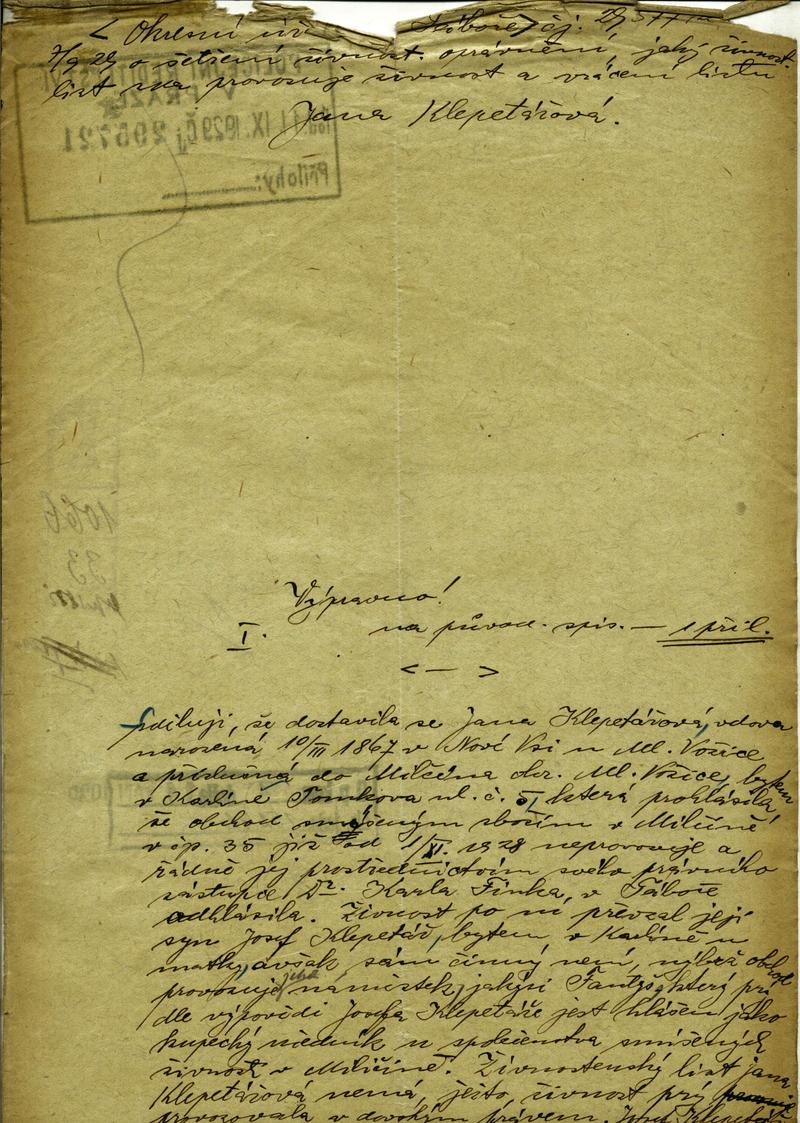 < Okresní úř Táboře čj. 29
7/9 29 o šetření živnost. oprávnění, jaký živnost.
list na provozuje živnost a vrácení listu
Jana Klepetářová.
V PRAZE
IX. 1929 Čj 205721
Přílohy:
1066
33
Výpravno!
I. na původ. spis. — 1 příl.
< — >
Sděluji, že dostavila se Jana Klepetářová, vdova
narozená 10/III 1867 v Nové Vsi u Ml. Vožice
a příslušná do Milčína okr. Ml. Vožice, bytem
v Karlíně Tomkova ul. č. 5, která prohlásila,
že obchod smíšeným zbožím v Milčíně
v čp. 35 již od 1/XI. 1928 neprovozuje a
řádně jej prostřednictvím svého právního
zástupce Dr. Karla Finka, v Táboře
odhlásila. Živnost po ní převzal její
syn Josef Klepetář, bytem v Karlíně u
matky, avšak sám činný není, nýbrž obchod
provozuje jeho náměstek, jakýsi Fantyš, který prý
dle výpovědi Josefa Klepetáře jest hlášen jako
kupecký úředník u společenstva smíšených
živností v Miličíně. Živnostenský list Jana
Klepetářová nemá, ježto živnost prý
provozovala v vdovským právem. Josef Klepetář